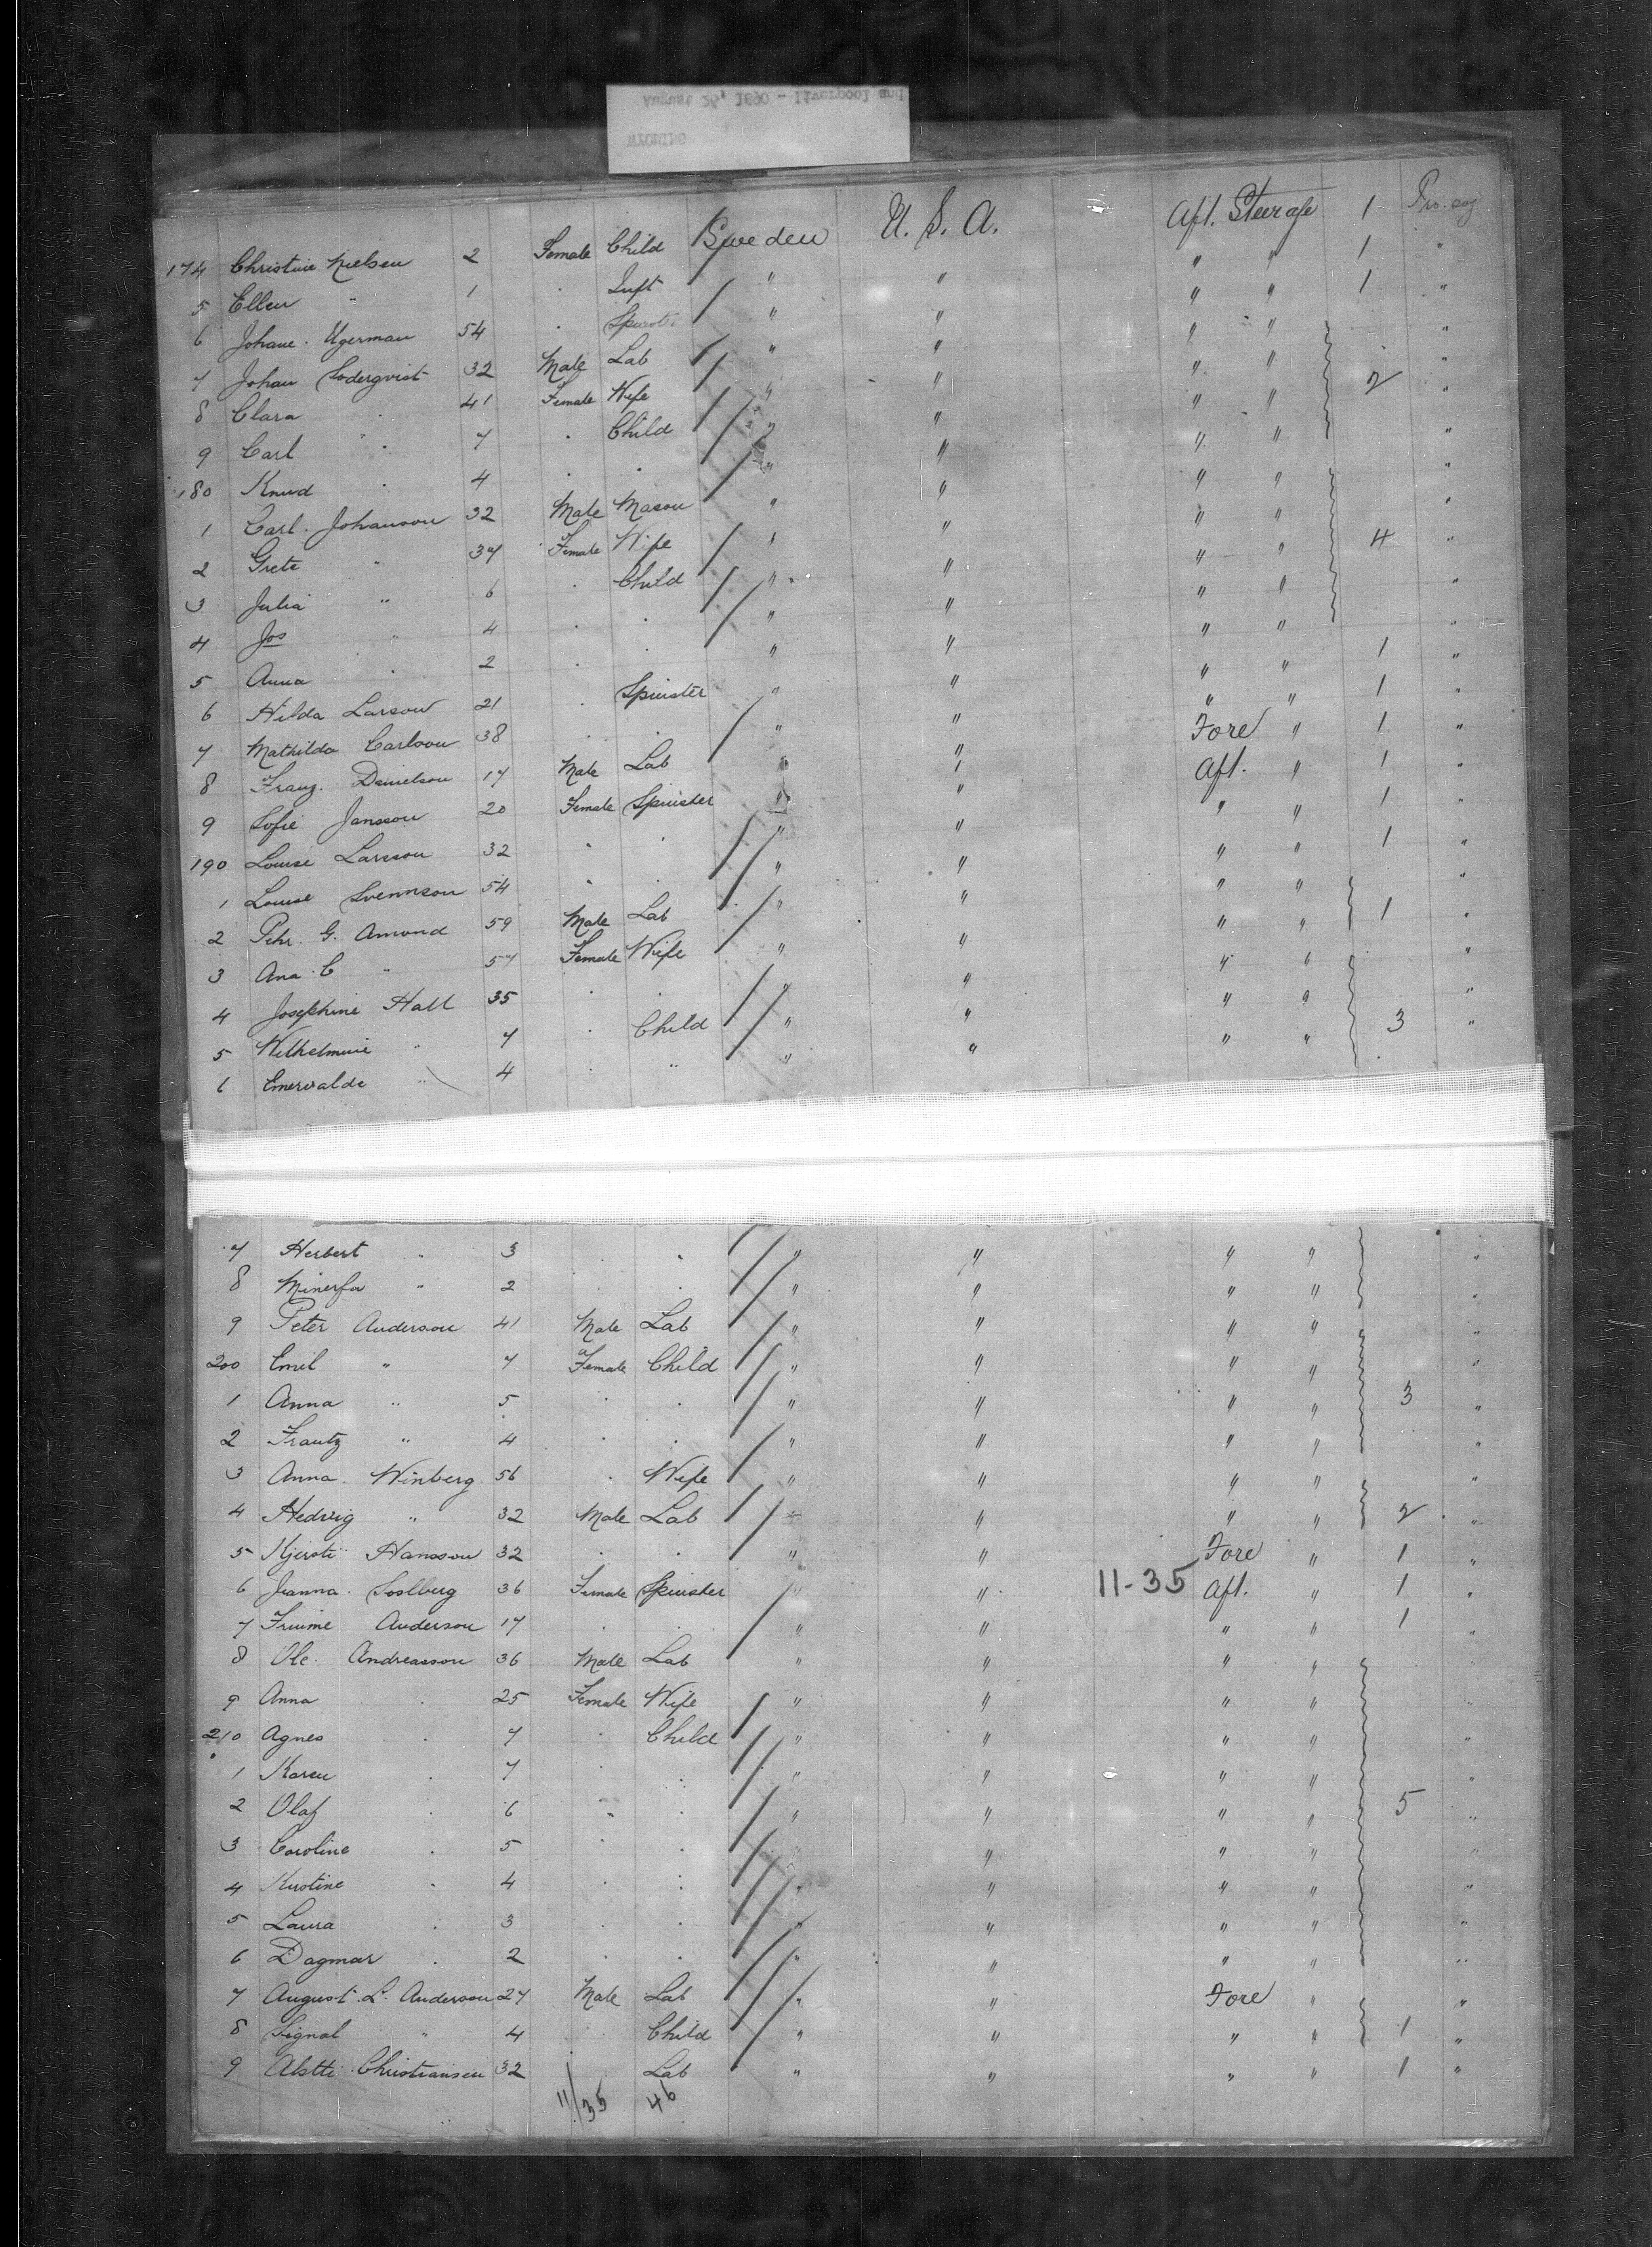 August 26, 1890 - Liverpool and
WYOMING
174 Christine Nielsen 2 Female Child Sweden U. S. A. Aft. Steerage 1 Pro. soj
5 Ellen " 1 . Inft " " " " 1 "
6 Johane. Ugerman 54 . " " " " 1 "
7 Johan Soderqvist 32 Male Lab " " " " "
8 Clara " 41 Female Wife " " " " 2 "
9 Carl " 7 . Child " " " " "
180 Knud " 4 . . " " " " "
1 Carl. Johanson 32 Male Mason " " " " "
2 Grete " 37 Female Wife " " " " 4 "
3 Julia " 6 . Child " " " " "
4 Jos " 4 . . " " " " "
5 Anna " 2 . . " " " " "
6 Hilda Larson 21 . Spinster " " " " 1 "
7 Mathilda Carlson 38 . . " " " " 1 "
8 Franz. Danielson 17 Male Lab " " Fore " 1 "
9 Sofie Jansson 20 Female Spinster " " Aft. " 1 "
190 Louise Larsson 32 " . " " " " 1 "
1 Louise Svennson 54 " . " " " " 1 "
2 Pehr. G. Amond 59 Male Lab " " " " "
3 Ana. C " 57 Female Wife " " " " 1 "
4 Josephine Hall 35 . . " " " " "
5 Wilhelmine " 7 . Child " " " " 3 "
6 Emervalde " 4 . " " " " " "
7 Herbert " 3 . . " " " " "
8 Minerfa " 2 . . " " " " "
9 Peter Anderson 41 Male Lab " " " " "
200 Emil " 7 Female Child " " " " "
1 Anna " 5 . . " " " " 3 "
2 Frantz " 4 . . " " " " "
3 Anna. Winberg 56 . Wife " " " " "
4 Hedvig " 32 Male Lab " " " " 2 "
5 Kjersti Hansson 32 . . " " Fore " 1 "
6 Jeanna. Soslberg 36 Female Spinster " " 11-35 Aft. " 1 "
7 Anderson 17 . . " " " " 1 "
8 Ole. Andreasson 36 Male Lab " " " " "
9 Anna . 25 Female Wife " " " " "
210 Agnes . 7 . Child " " " " "
1 Karen . 7 . . " " " " "
2 Olaf . 6 " . " " " " 5 "
3 Caroline . 5 . . " " " " "
4 Kirstine . 4 . . " " " " "
5 Laura . 3 . . " " " " "
6 Dagmar . 2 . . " " " " "
7 August. L. Anderson 27 Male Lab " " Fore " "
8 Signal " 4 . Child " " " " 1 "
9 Alstti Christiansen 32 . Lab " " " " 1 "
11/35 46